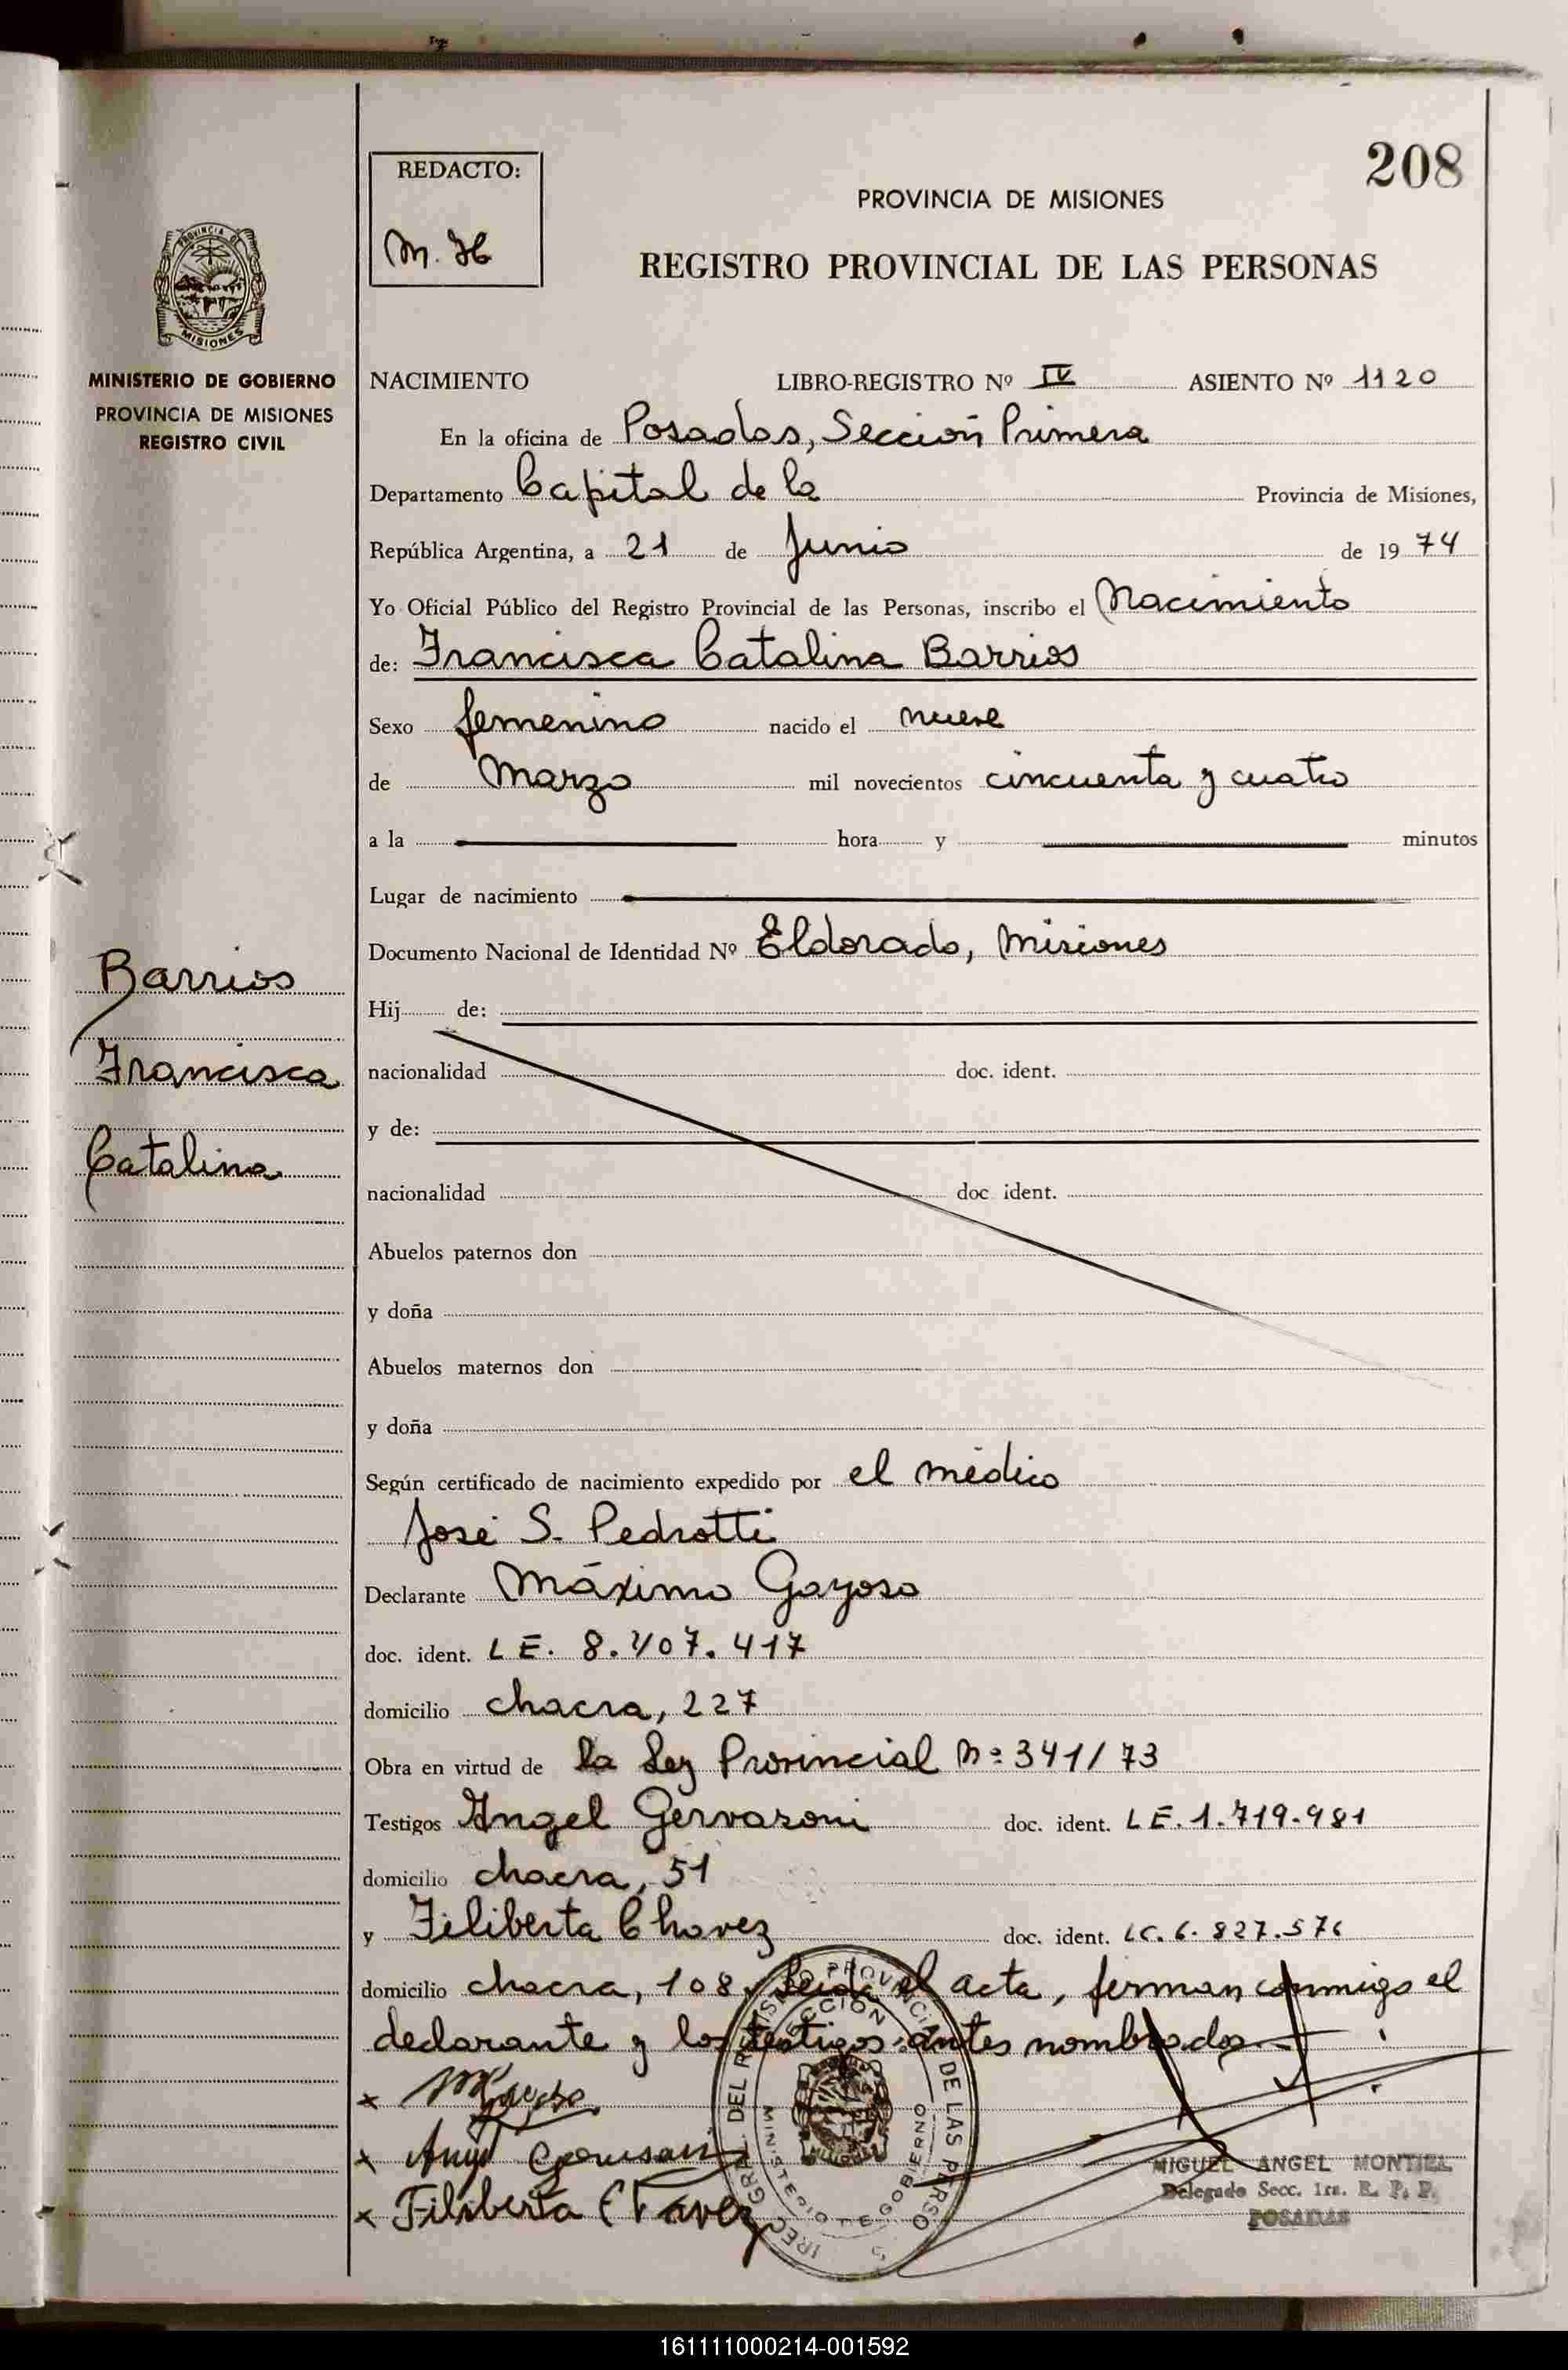 208
REDACTO:
M. H
PROVINCIA DE MISIONES
REGISTRO PROVINCIAL DE LAS PERSONAS
PROVINCIA DE
MISIONES
MINISTERIO DE GOBIERNO
PROVINCIA DE MISIONES
REGISTRO CIVIL
NACIMIENTO LIBRO-REGISTRO Nº IV ASIENTO Nº 1120
En la oficina de Posadas, Sección Primera
Departamento Capital de la Provincia de Misiones,
República Argentina, a 21 de Junio de 1974
Yo Oficial Público del Registro Provincial de las Personas, inscribo el Nacimiento
de: Francisca Catalina Barrios
Sexo femenino nacido el nueve
de Marzo mil novecientos cincuenta y cuatro
a la hora y minutos
Lugar de nacimiento
Documento Nacional de Identidad Nº Eldorado, Misiones
Hij de:
nacionalidad doc. ident.
y de:
nacionalidad doc ident.
Abuelos paternos don
y doña
Abuelos maternos don
y doña
Según certificado de nacimiento expedido por el médico
José S. Pedrotti
Declarante Máximo Gayoso
doc. ident. LE. 8.407.417
domicilio chacra, 227
Obra en virtud de la Ley Provincial Nº 341/73
Testigos Angel Gervasoni doc. ident. LE. 1.719.981
domicilio chacra, 51
y Filiberta Chavez doc. ident. LC. 6.827.576
domicilio chacra, 108. Leída el acta, firman conmigo el
declarante y los testigos antes nombrados
Barrios
Francisca
Catalina
x
x
x Filiberta Chavez
MINISTERIO DE GOBIERNO
MIGUEL ANGEL MONTIEL
Delegado Secc. 1ra. R. P. P.
POSADAS
161111000214-001592